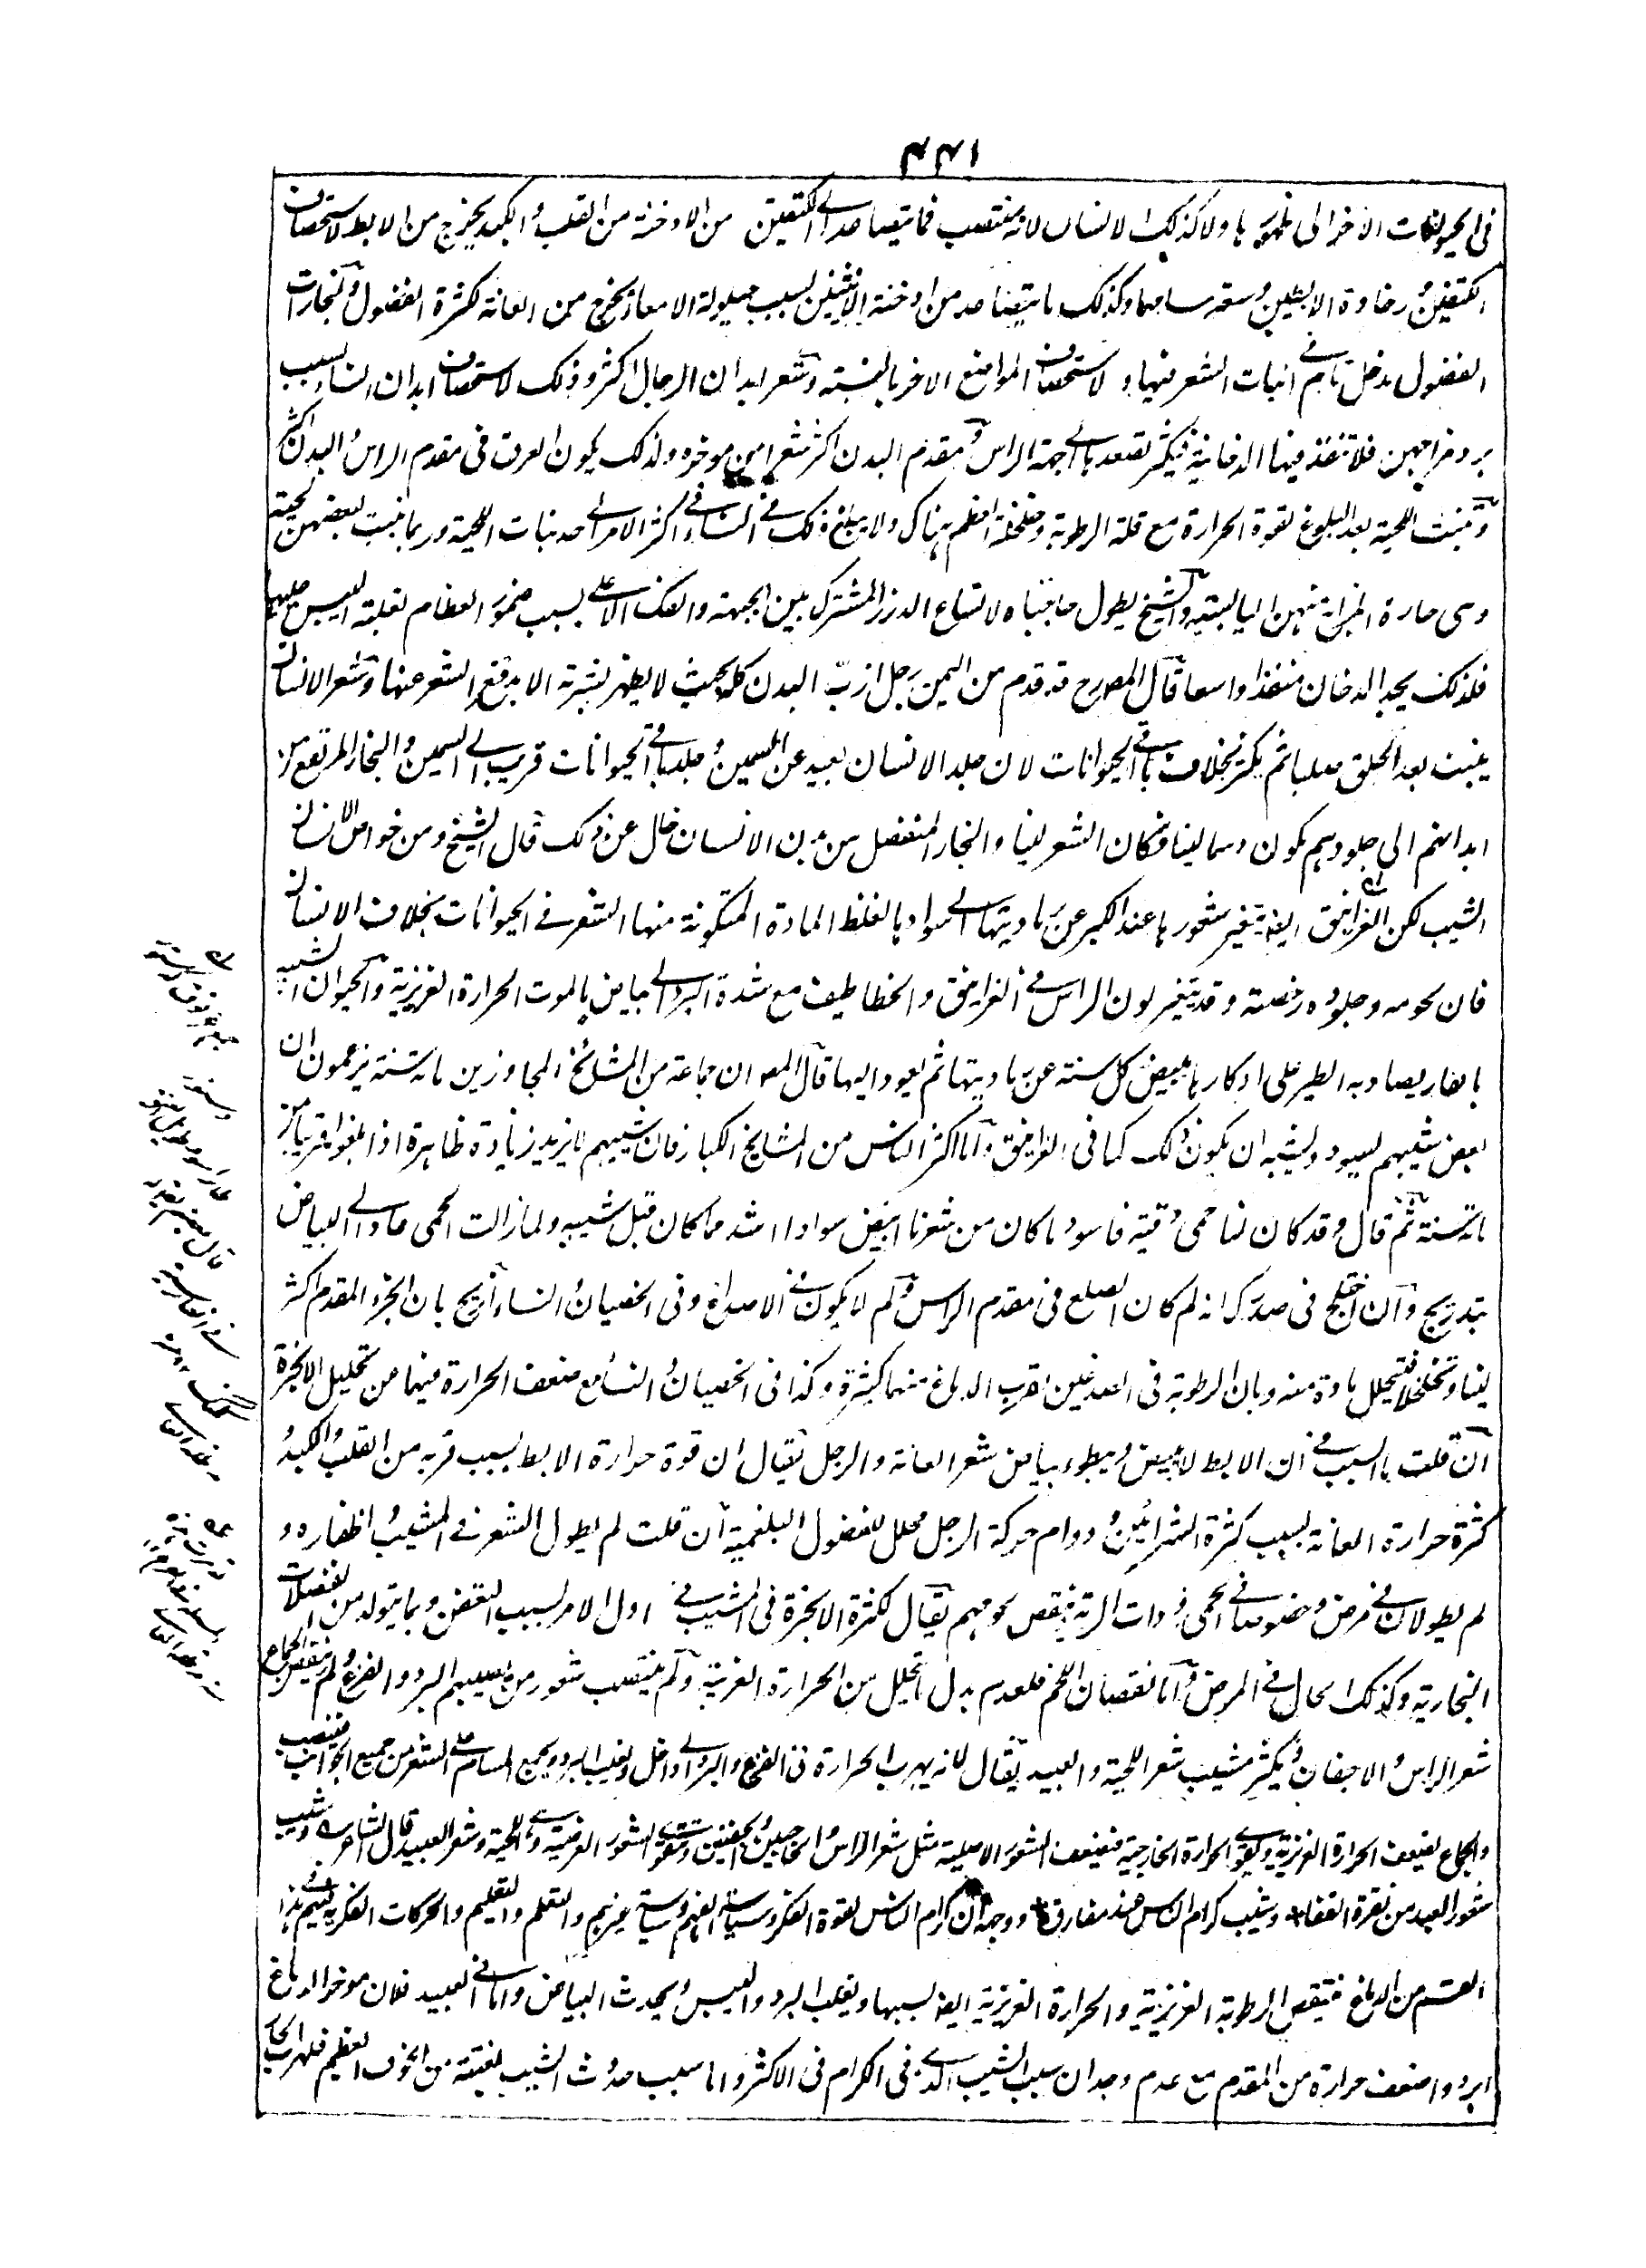 ٤٤١
فى الحيوانات الاخر الى ظهورها ولا كذلك الانسان لانه منتصب فما يتصاعد الى الكتفين من الادخنة من القلب والكبد يخرج من الابط لاستحصاف
الكتفين ورخاوة الابطين وسعة مسامها وكذلك ما يتصاعد من ادخنة الانثيين بسبب حيلولة الامعاء يخرج من العانة لكثرة الفضول والبخارات
الفضول مدخل تام فى انبات الشعر فيها ولاستحصاف المواضع الاخر بالنسبة وشعر ابدان الرجال اكثر وذلك لاستحصاف ابدان النساء بسبب
برد مزاجهن فلا تنفذ فيها الدخانية فيكثر تصعدها الى جهة الراس ومقدم البدن اكثر شعرا من موخره ولذلك يكون العرق فى مقدم الراس والبدن اكثر
وتنبت اللحية بعد البلوغ لقوة الحرارة مع قلة الرطوبة وتخلخل العظم هناك ولا يبلغ ذلك فى النساء فى اكثر الامر الى حد نبات اللحية وربما نبت لبعضهن لحية
وهى حارة المزاج منهن اليابسته والشيخ يطول حاجباه لاتساع الدرز المشترك بين الجبهة والفك الاعلى بسبب ضمور العظام لغلبة اليبس عليها
فلذلك يجد الدخان منفذا واسعا قال المصرح قد قدم من اليمن رجل ازب البدن كله بحيث لا يظهر بشرته الا برفع الشعر عنها وشعر الانسان
ينبت بعد الحلق صلبا ثم يكثر بخلاف باقى الحيوانات لان جلد الانسان بعيد عن السمين وجلد باقى الحيوانات قريب الى السمين والبخار المرتفع من
ابدانهم الى جلودهم يكون دسما لينا فكان الشعر لينا والبخار المنفصل من بدن الانسان خال عن ذلك قال الشيخ ومن خواص الانسان
الشيب لكن الغرانيق ايضا يتغير شعورها عند الكبر عن رماديتها الى سوادها لغلظ المادة المتكونة منها الشعر فى الحيوانات بخلاف الانسان
فان لحومه وجلوده رخصة وقد يتغير لون الراس فى الغرانيق والخطاطيف مع شدة البرد الى بياض ما لموت الحرارة الغريزية والحيوان الشبيه
بالفار يصاد به الطير على اوكارها يبيض كل سنة عن رماديتها ثم يعود اليها قال المصـ ان جماعة من المشائخ المجاوزين مائة سنة يزعمون ان
بعض شيبهم يسود ويشبه ان يكون ذلك كما فى الغرانيق واما اكثر الناس من المشايخ الكبار فان شيبهم لا يزيد زيادة ظاهرة اذا بلغوا قريبا من
مائة سنة ثم قال وقد كان لنا حمى دقية فاسود ما كان من شعرنا ابيض سوادا اشد مما كان قبل شيبه ولما زالت الحمى عاد الى البياض
بتدريج وان اختلج فى صدرك انه لم كان الصلع فى مقدم الراس ولم لا يكون فى الاصداغ وفى الخصيان والنساء ازيح بان الجزء المقدم اكثر
لينا وتخلخلا فتتحلل مادة منه وبان الرطوبة فى الصدغين لقرب الدماغ منهما كثيرة وكذا فى الخصيان والنساء مع ضعف الحرارة فيهما من تحليل الابخرة
ان قلت ما السبب فى ان الابط لا يبيض ويبطوء بياض شعر العانة والرجل يقال ان قوة حرارة الابط بسبب قربه من القلب والكبد و
كثرة حرارة العانة بسبب كثرة الشرائين ودوام حركة الرجل محلل للفضول البلغمية ان قلت لم يطول الشعر فى المشيب واظفاره و
لم يطولان فى مرض وخصوصا فى الحمى وذات الرية وينقص لحومهم يقال لكثرة الابخرة فى المشيب فى اول الامر بسبب التعفن وبما يتولد من الفضلات
البخارية وكذلك الحال فى المرض واما نقصان اللحم فلعدم بدل ما يتحلل من الحرارة الغريبة ولم ينتصب شعور من يصيبهم البرد والفزع ولم ينقص الجماع
شعر الراس والاجفان ويكثر مشيب شعر اللحية والعبيد يقال لانه يهرب الحرارة فى الفزع والبرد الى داخل ويغلب البرد ويجمع المسام على الشعر من جميع الجوانب فينتصب
والجماع يضعف الحرارة الغريزية ويقوى الحرارة الخارجية فيضعف الشعور الاصلية مثل شعر الراس والحاجبين والجفنين ويقوى الشعور العرضية وهى اللحية وشعر العبيد قال الشاعر وشيب
شعور العبيد من نقرة القفا ٭ وشيب كرام الناس عند مفارق ٭ ووجه ان كرام الناس لقوة الفكر وسياسة انفسهم وسياسة غيرهم والتعلم والتعليم والحركات الفكرية فيهم هذا
القسم من الدماغ فينقص الرطوبة الغريزية والحرارة الغريزية ايضا بسببها ويغلب البرد واليبس ويحدث البياض واما فى العبيد فلان موخر الدماغ
ابرد واضعف حرارة من المقدم مع عدم وجدان سبب الشيب الذى فى الكرام فى الاكثر واما سبب حدوث الشيب بغتة من الخوف العظيم فلهرب الحار